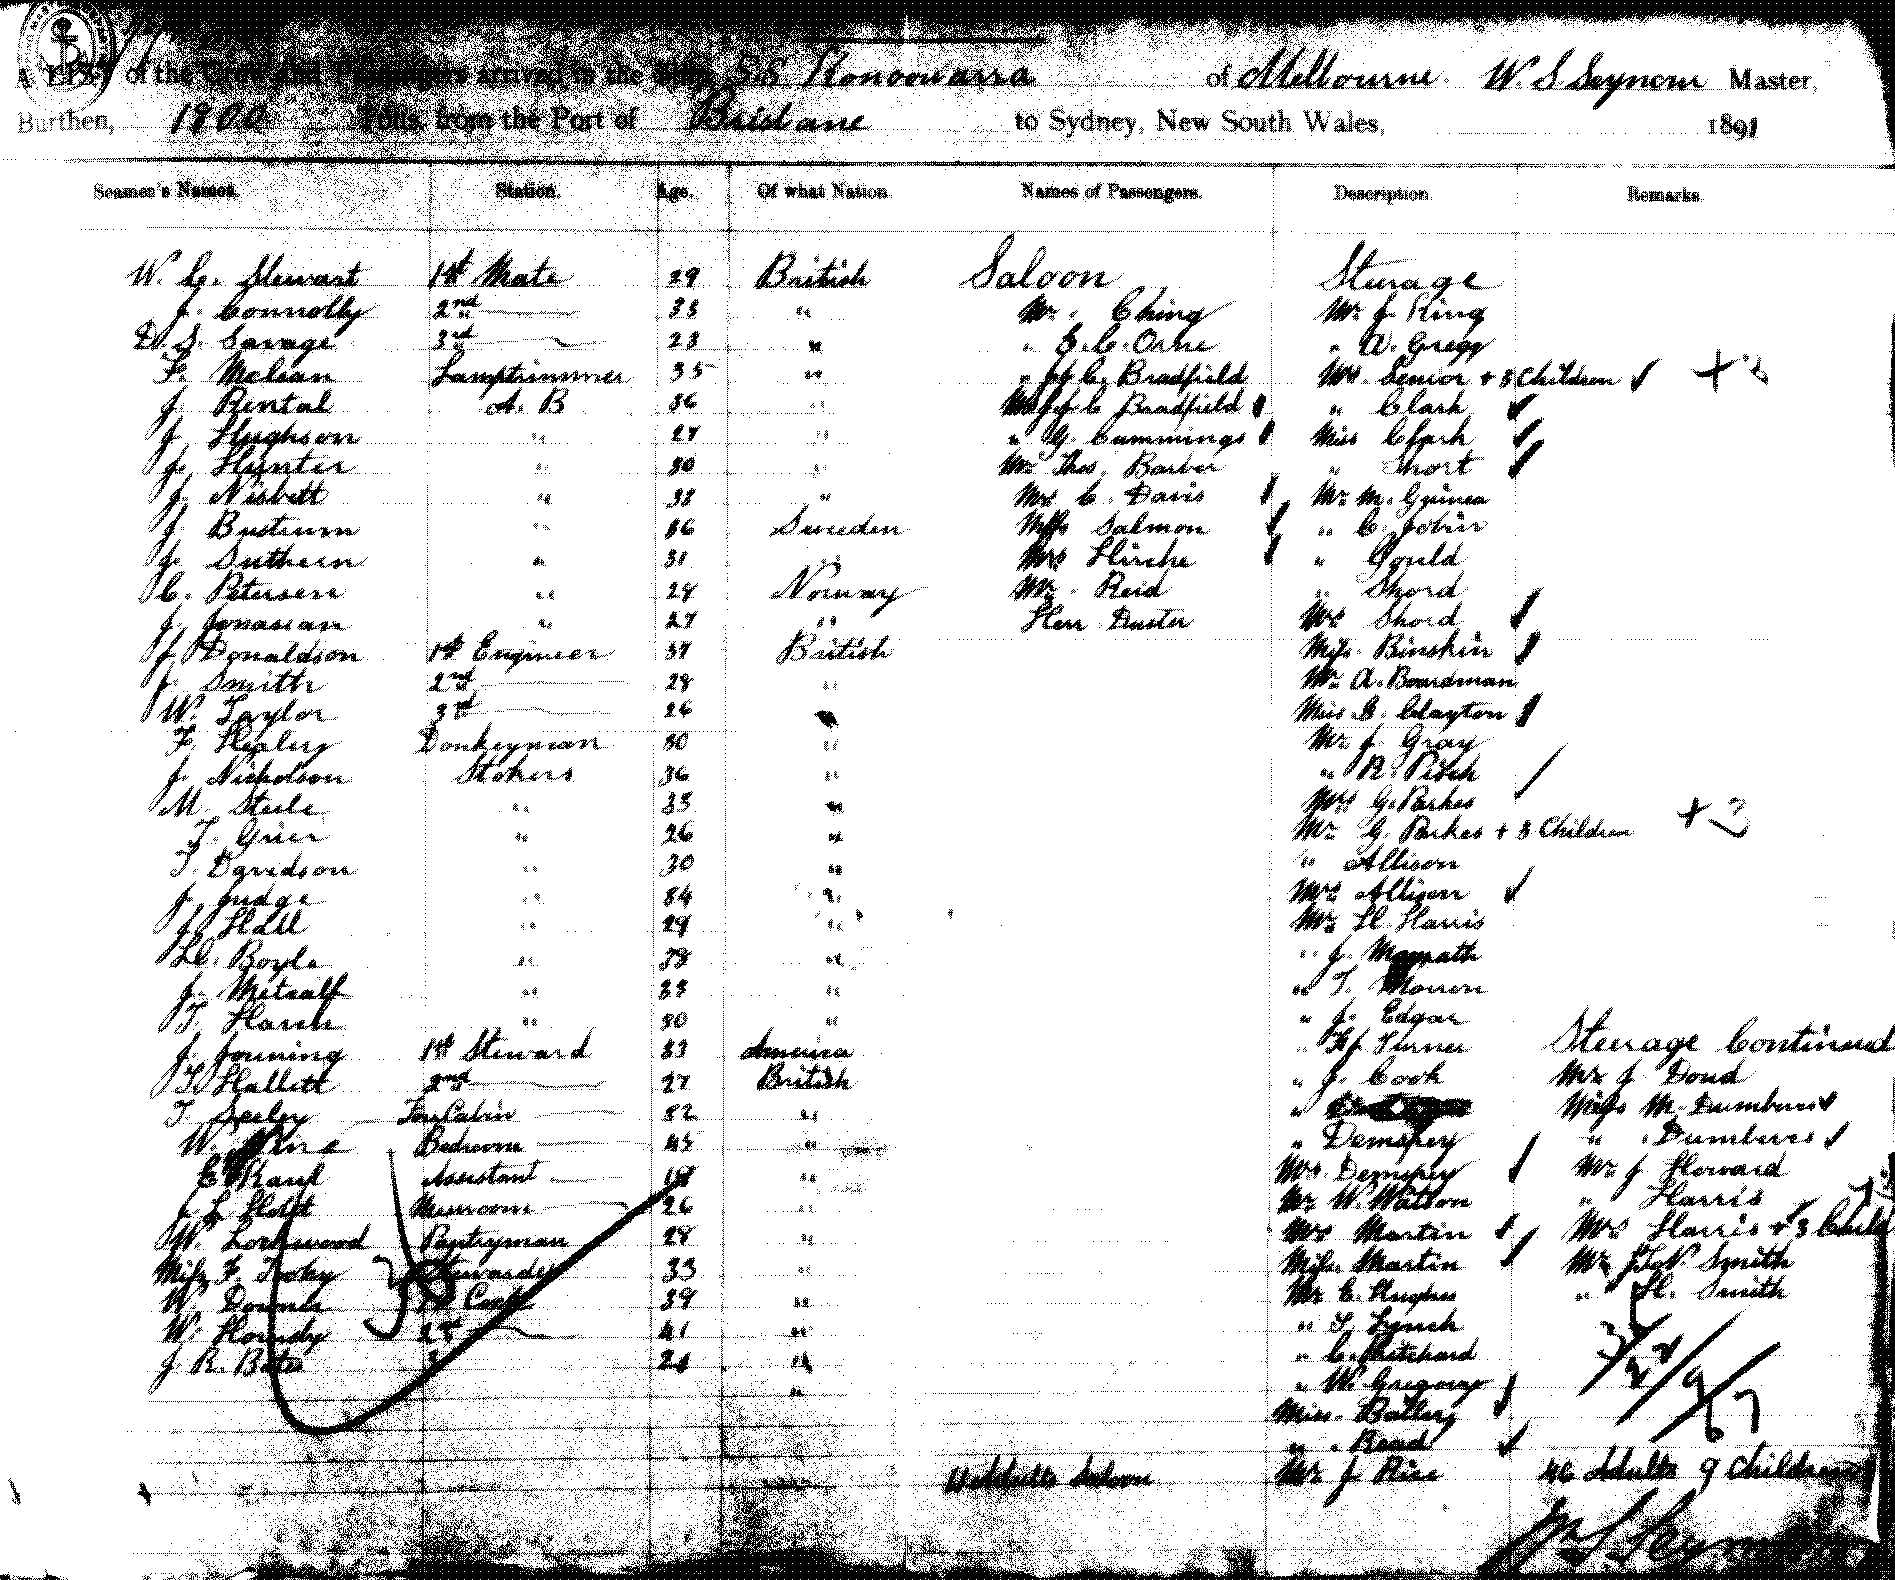 A LIST of the Crew and Passengers arrived in the Ship S.S Konoowarra of Melbourne. W. S Seymour Master,
Burthen, 1800 Tons, from the Port of Brisbane to Sydney, New South Wales, 1891
Seamen's Names. Station. Age. Of what Nation. Names of Passengers. Description. Remarks.
W. C. Stewart 1st Mate 29 British Saloon Sterage
J. Connolly 2nd 33 " Mr. Ching Mr J. King
D. S. Savage 3rd 23 " " E. C. Orme " A. Gregg
F. McLean Lamptrimmer 35 " " J. C. Bradfield Mrs. Senior + 3 Children
J. Rental A. B 36 " Mrs J. C Bradfield " Clark
J. Hughson " 27 " " G. Cummings Miss Clark
J. Hunter " 30 " Mr Thos. Barber " Short
J. Nisbett " 38 " Mrs C. Davis Mr M. Guinea
J. " 36 Sweden Miss Salmon " C.
J. Suthern " 31 " Mrs Hirsche " Gould
C. Petersen " 24 Norway Mr. Reid " Shord
J. " 27 " Herr Duster Mrs Shord
J. Donaldson 1st Engineer 37 British Miss Binskin
J. Smith 2nd 28 " Mr A. Boardman
W. Taylor 3rd 26 " Miss B. Clayton
F. Healey Donkeyman 30 " Mr J. Gray
J. Nicholson Stokers 36 " " R.
M. Steele " 35 " Mrs G. Parkes
T. Grier " 26 " Mr G. Parkes + 3 Children
T. Davidson " 30 " " Allison
J. Judge " 34 " Mrs Allison
J. Hall " 29 " Mr H. Harris
H. Boyle " 38 " " J.
J. Metcalf " 33 " " T. Morron
T. " 30 " " J. Edgar
J. 1st Steward 33 America " Turner Sterage Continued
T. Hallett 2nd 27 British " J. Cook Mr J Doud
T. Seeley Fore Cabin 32 " " Miss M.
W. Bedroom 45 " " Dempsey "
E. Assistant " Mrs. Dempsey Mr J Howard
J L Holt Messroom 26 " Mr W. Watson " Harris
W. Lockwood Pantryman 28 " Mrs Martin Mrs Harris + 3 Child
Miss F. Tooky Stewardess 33 " Miss Martin Mr Smith
W. 1st Cook 39 " Mr C. Hughes " H. Smith
W. Hornby 2nd 41 " " T. Lynch
J R. Bate 3 " " C. Pritchard
" " W. Gregory
Miss. Battery
" Read
Adults Saloon Mr J Rise 46 Adults 9 Children
Wm S Seymour